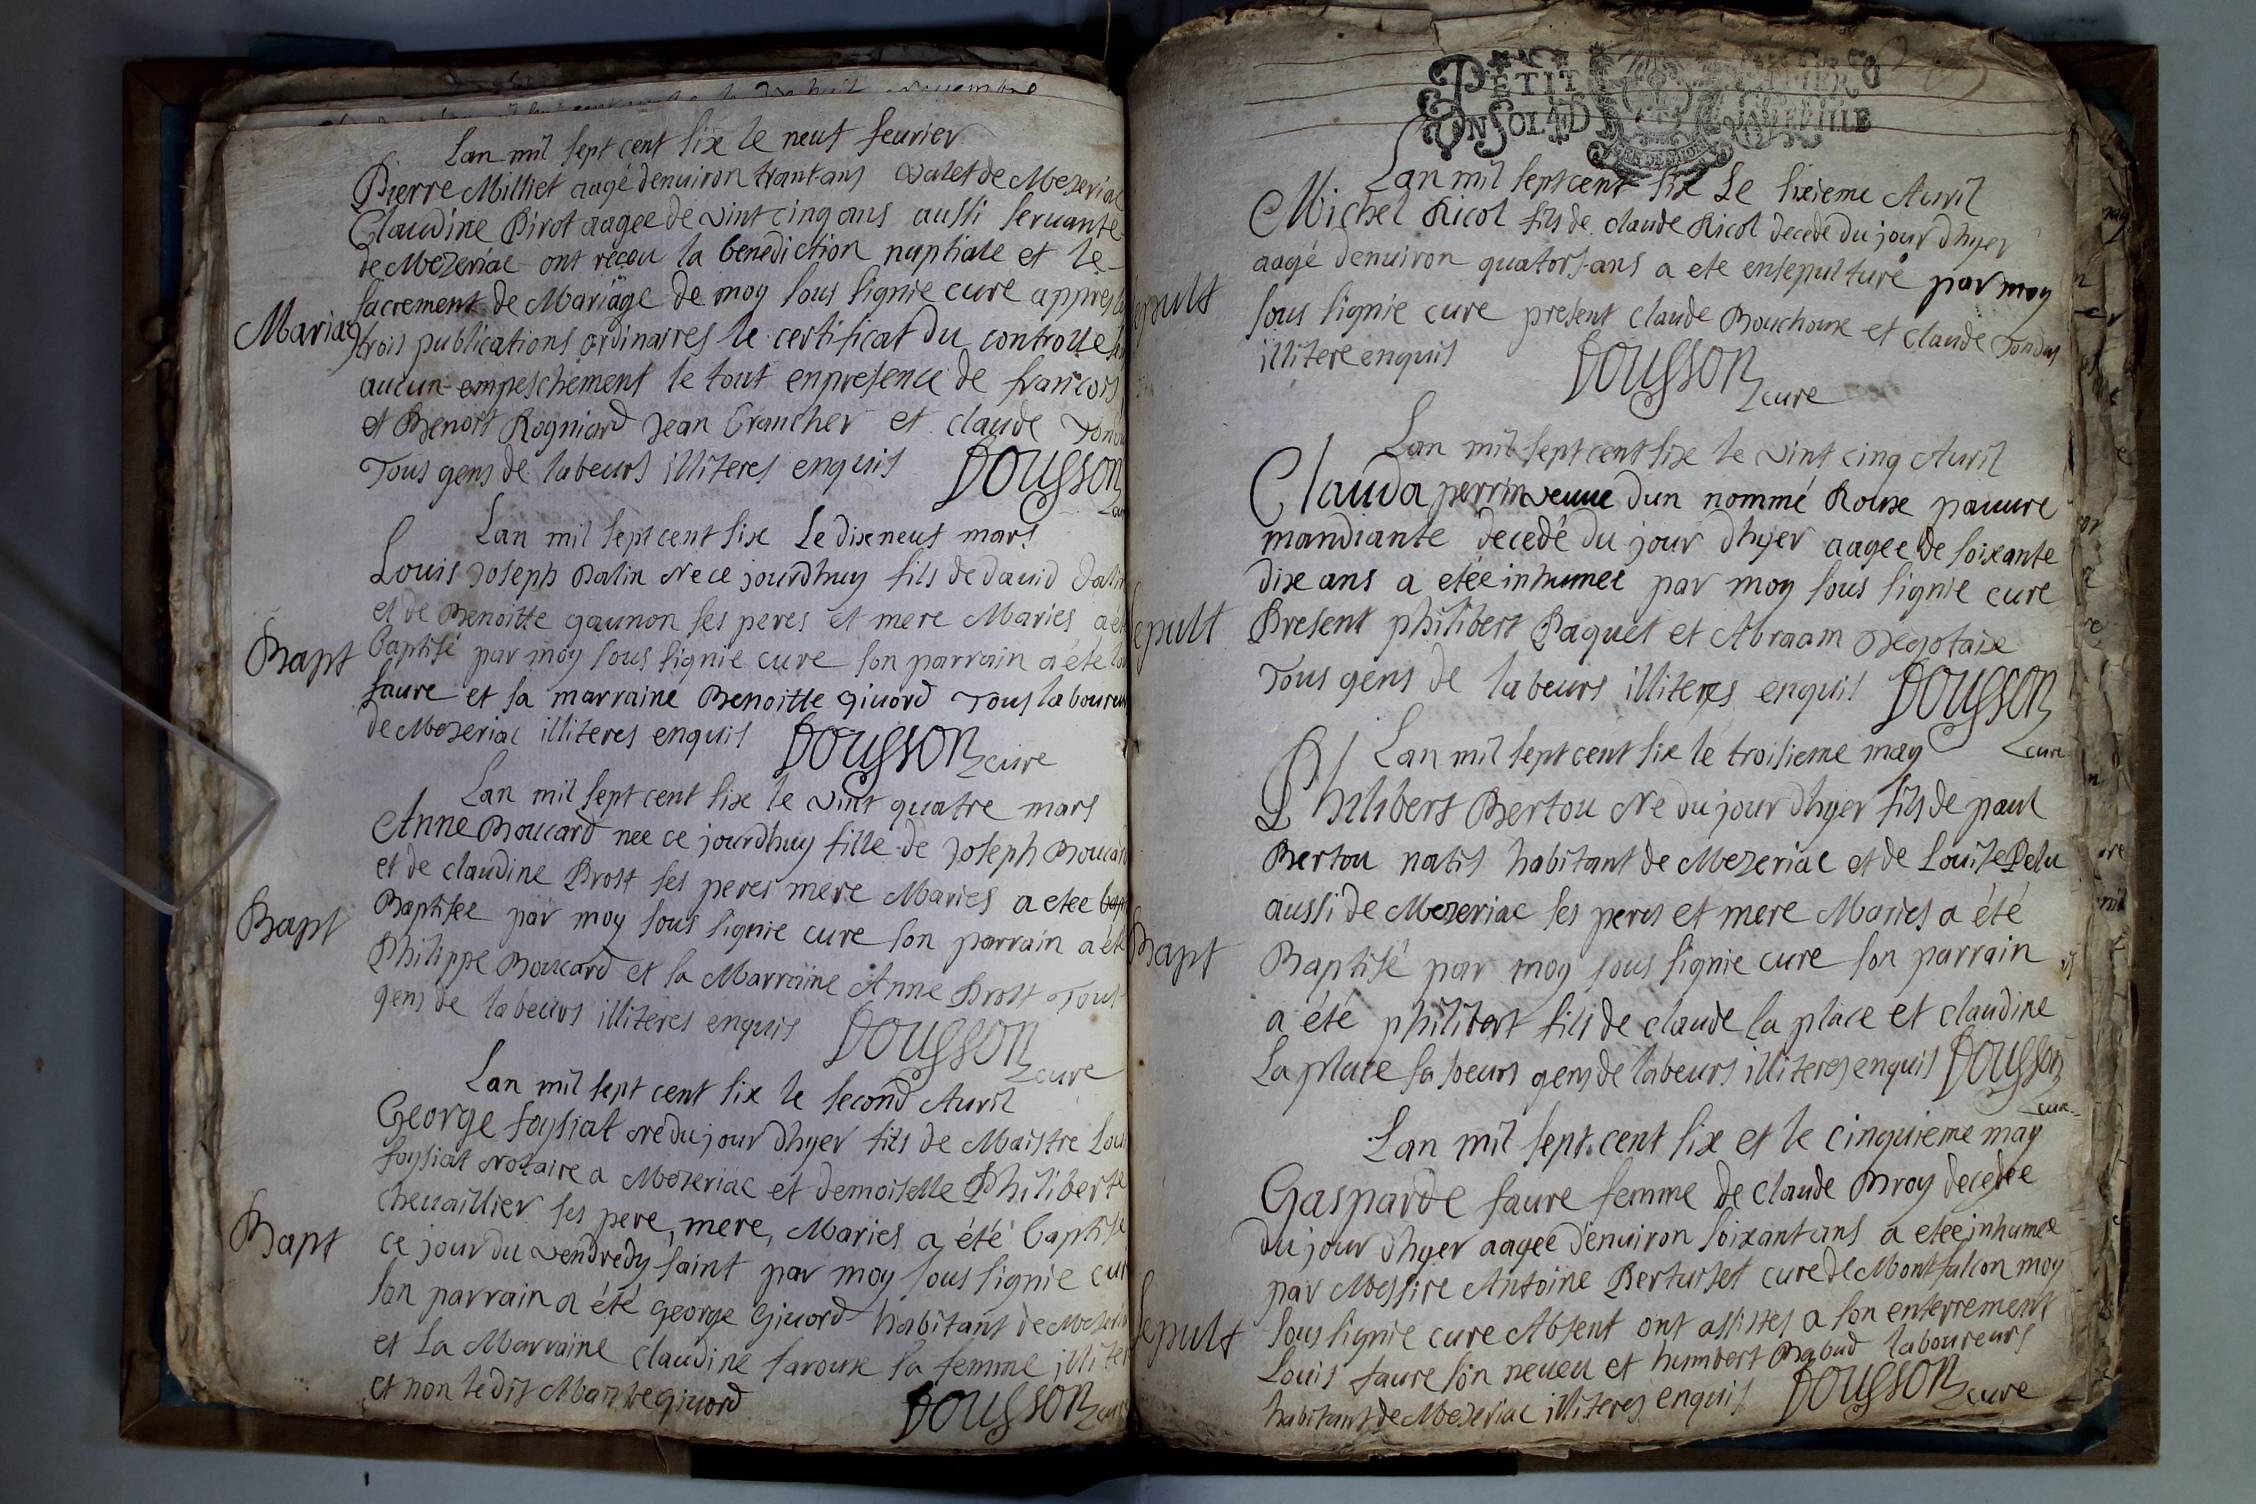 Novembre
Lan mil sept cent six le neuf feurier
Pierre Milliet aagé denuiron trantans valet de Mezeriac
Claudine Pirot aagee de vint cinq ans aussi seruante
de Mezeriac ont reçeu la benediction nuptiale et le
sacrement de Mariage de moy sous signie cure appres
Mariag
trois publications ordinaires le certificat du controlle
aucun empeschement le tout enpresence de francois
et Benoit Rogniard Jean Crancher et claude
Tous gens de labeurs illiteres enquis Dousson
Lan mil sept cent six Le dixneuf mars
Louis Joseph Dalin Ne ce jourdhuy fils de dauid Dalin
et de Benoitte gaunon ses peres et mere Maries a été
Bapt
baptisé par moy sous signie cure son parrain a été
faure et sa marraine Benoitte giuord Tous laboureurs
de Mezeriac illiteres enquis Dousson cure
Lan mil sept cent six le vint quatre mars
Anne Boucard nee ce jourdhuy fille de Joseph Boucard
et de claudine Brost ses peres mere Maries a etee
Bapt
Baptisee par moy sous signie cure son parrain a été
Philippe Boucard et la Marraine Anne Brost Tous
gens de labeurs illiteres enquis Dousson cure
Lan mil sept cent six le second Auril
George foysiat né du jour dhyer fils de Maistre
foysiat Notaire a Mezeriac et demoiselle Philiberte
cheuaillier ses pere, mere, Maries a été baptisé
Bapt
ce jour du vendredy saint par moy sous signie curé
son parrain a été george Giuord habitant de Mezeriac
et la Marraine claudine faroux sa femme illitere
et non ledit Marite giuord Dousson cure
PETIT PAPIER
UN SOL 4 D LA FEUILLE
Lan mil sept cent six Le sixieme Auril
Michel Ricol fils de claude Ricol decede du jour dhyer
aagé denuiron quatorsans a ete ensepulturé par moy
sepult
sous signie cure present claude Bouchoux et claude Tondus
illitere enquis Dousson cure
Lan mil sept cent six le vint cinq Auril
Clauda perrin veuue dun nommé Roux pauure
mandiante decedé du jour dhyer aagee de soixante
dix ans a etée inhumee par moy sous signie cure
sepult
Present philibert Paquet et Abraam Degotaix
Tous gens de labeurs illiteres enquis Dousson cure
Lan mil sept cent six le troisieme may
Philibert Bertou Ne du jour dhyer fils de paul
Bertou natif habitant de Mezeriac et de Louise Pelu
aussi de Mezeriac ses peres et mere Maries a été
Bapt
Baptisé par moy sous signie cure son parrain
a été philibert fils de claude la place et claudine
La place sa soeurs gens de labeurs illiteres enquis Dousson cure
Lan mil sept cent six et le cinquieme may
Gasparde faure femme de claude Broy decedée
du jour dhyer aagee denuiron soixantans a etee inhumee
par Messire Antoine Berturset cure de Montfalcon moy
sepult
sous signie cure Absent ont assistes a son enterrement
Louis faure son neueu et humbert Rabud laboureurs
habitant de Mezeriac illiteres enquis Dousson cure